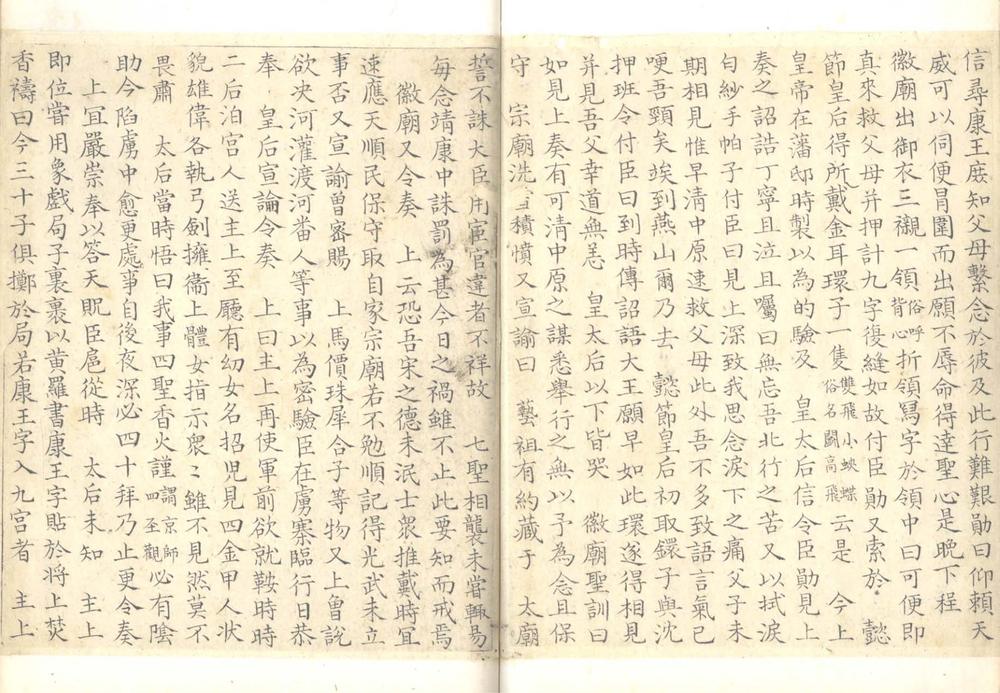 信尋康王庻知父母繫念於彼及此行難艱勛曰仰頼天
威可以伺便冒圍而出願不辱命得達聖心是晚下程
徽廟出御衣三襯一領俗呼背心折領寫字於領中曰可便即
真來救父母并押計九字復縫如故付臣勛又索於 懿
節皇后得所戴金耳環子一隻雙飛小蛺蝶俗名鬬高飛云是 今上
皇帝在藩邸時製以為的驗及 皇太后信令臣勛見上
奏之詔誥丁寧且泣且囑曰無忘吾北行之苦又以拭淚
白紗手帕子付臣曰見上深致我思念淚下之痛父子未
期相見惟早清中原速救父母此外吾不多致語言氣已
哽吾頸矣竢到燕山爾乃去 懿節皇后初取鐶子與沈
押班令付臣曰到時傳詔語大王願早如此環遂得相見
并見吾父幸道無恙 皇太后以下皆哭 徽廟聖訓曰
如見上奏有可清中原之謀悉舉行之無以予為念且保
守 宗廟洗積憤又宣諭曰 藝祖有約藏于 太廟
誓不誅大臣用宦官違者不祥故 七聖相襲未嘗輒易
每念靖康中誅罰為甚今日之禍雖不止此要知而戒焉
徽廟又令奏 上云恐吾宋之德未泯士衆推戴時宜
速應天順民保守取自家宗廟若不勉順記得光武未立
事否又宣諭曽密賜 上馬價珠犀合子等物又上曽說
欲决河灌渡河番人等事以為密驗臣在虜寨臨行日恭
奉 皇后宣諭令奏 上曰主上再使軍前欲就鞍時時
二后洎宮人送主上至廳有幼女名招児見四金甲人狀
貌雄偉各執弓劍擁衛上體女指示衆〻雖不見然莫不
畏肅 太后當時悟曰我事四聖香火謹謂京師四至觀必有陰
助今陷虜中愈更處事自後夜深必四十拜乃止更令奏
上宜嚴崇奉以答天貺臣扈從時 太后未知 主上
即位嘗用象戲局子裹裹以黄羅書康王字貼於將上焚
香禱曰今三十子俱擲於局若康王字入九宮者 主上